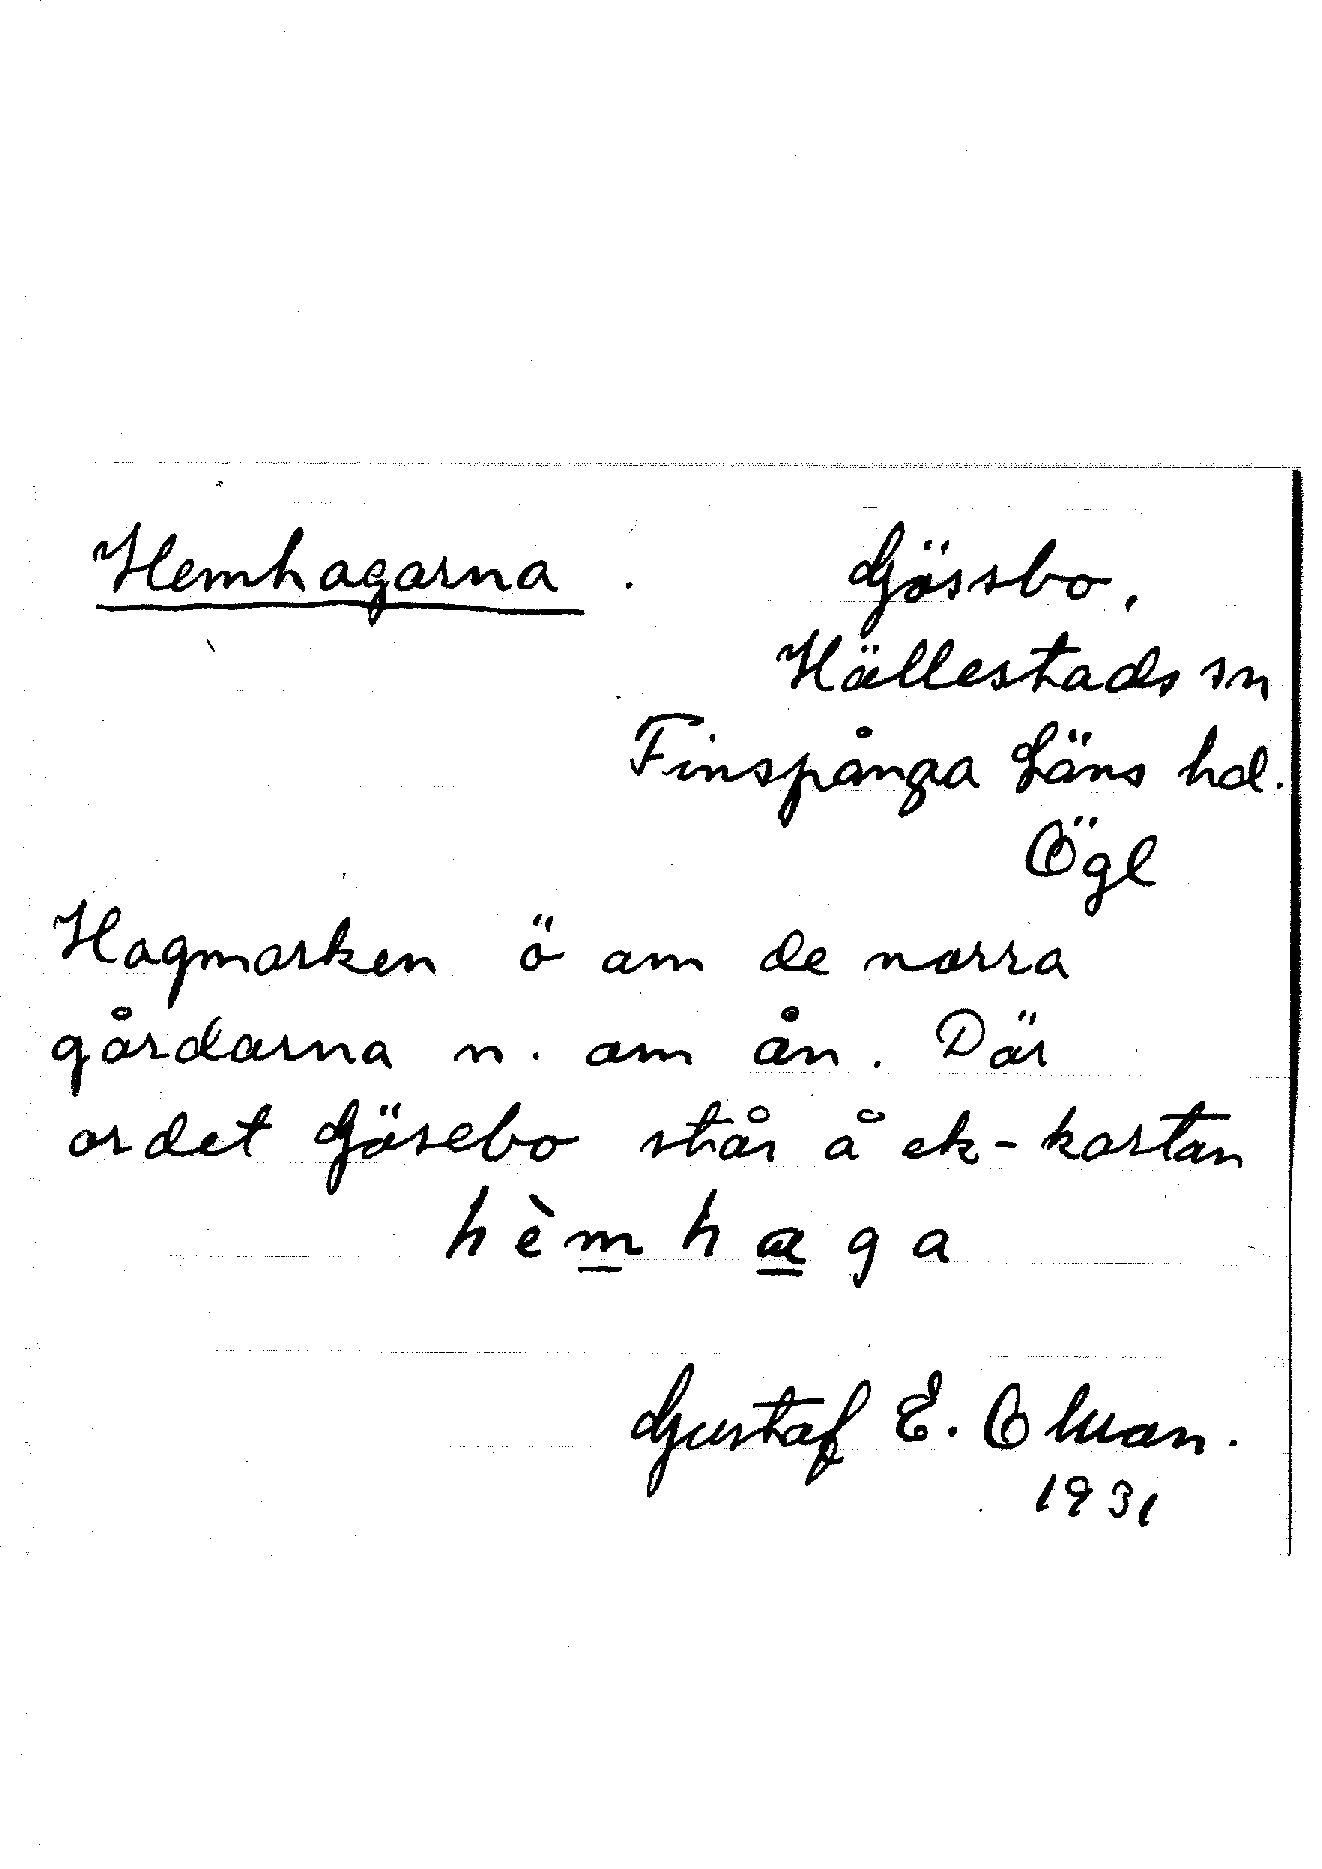 Hemhagarna.
Gössbo,
Hällestads sn
Finspånga Läns hd.
Ögl
Hagmarken ö om de norra
gårdarna n. om ån. Där
ordet Gösebo står å ek-kartan
hèmhaga
Gustaf E.
1931